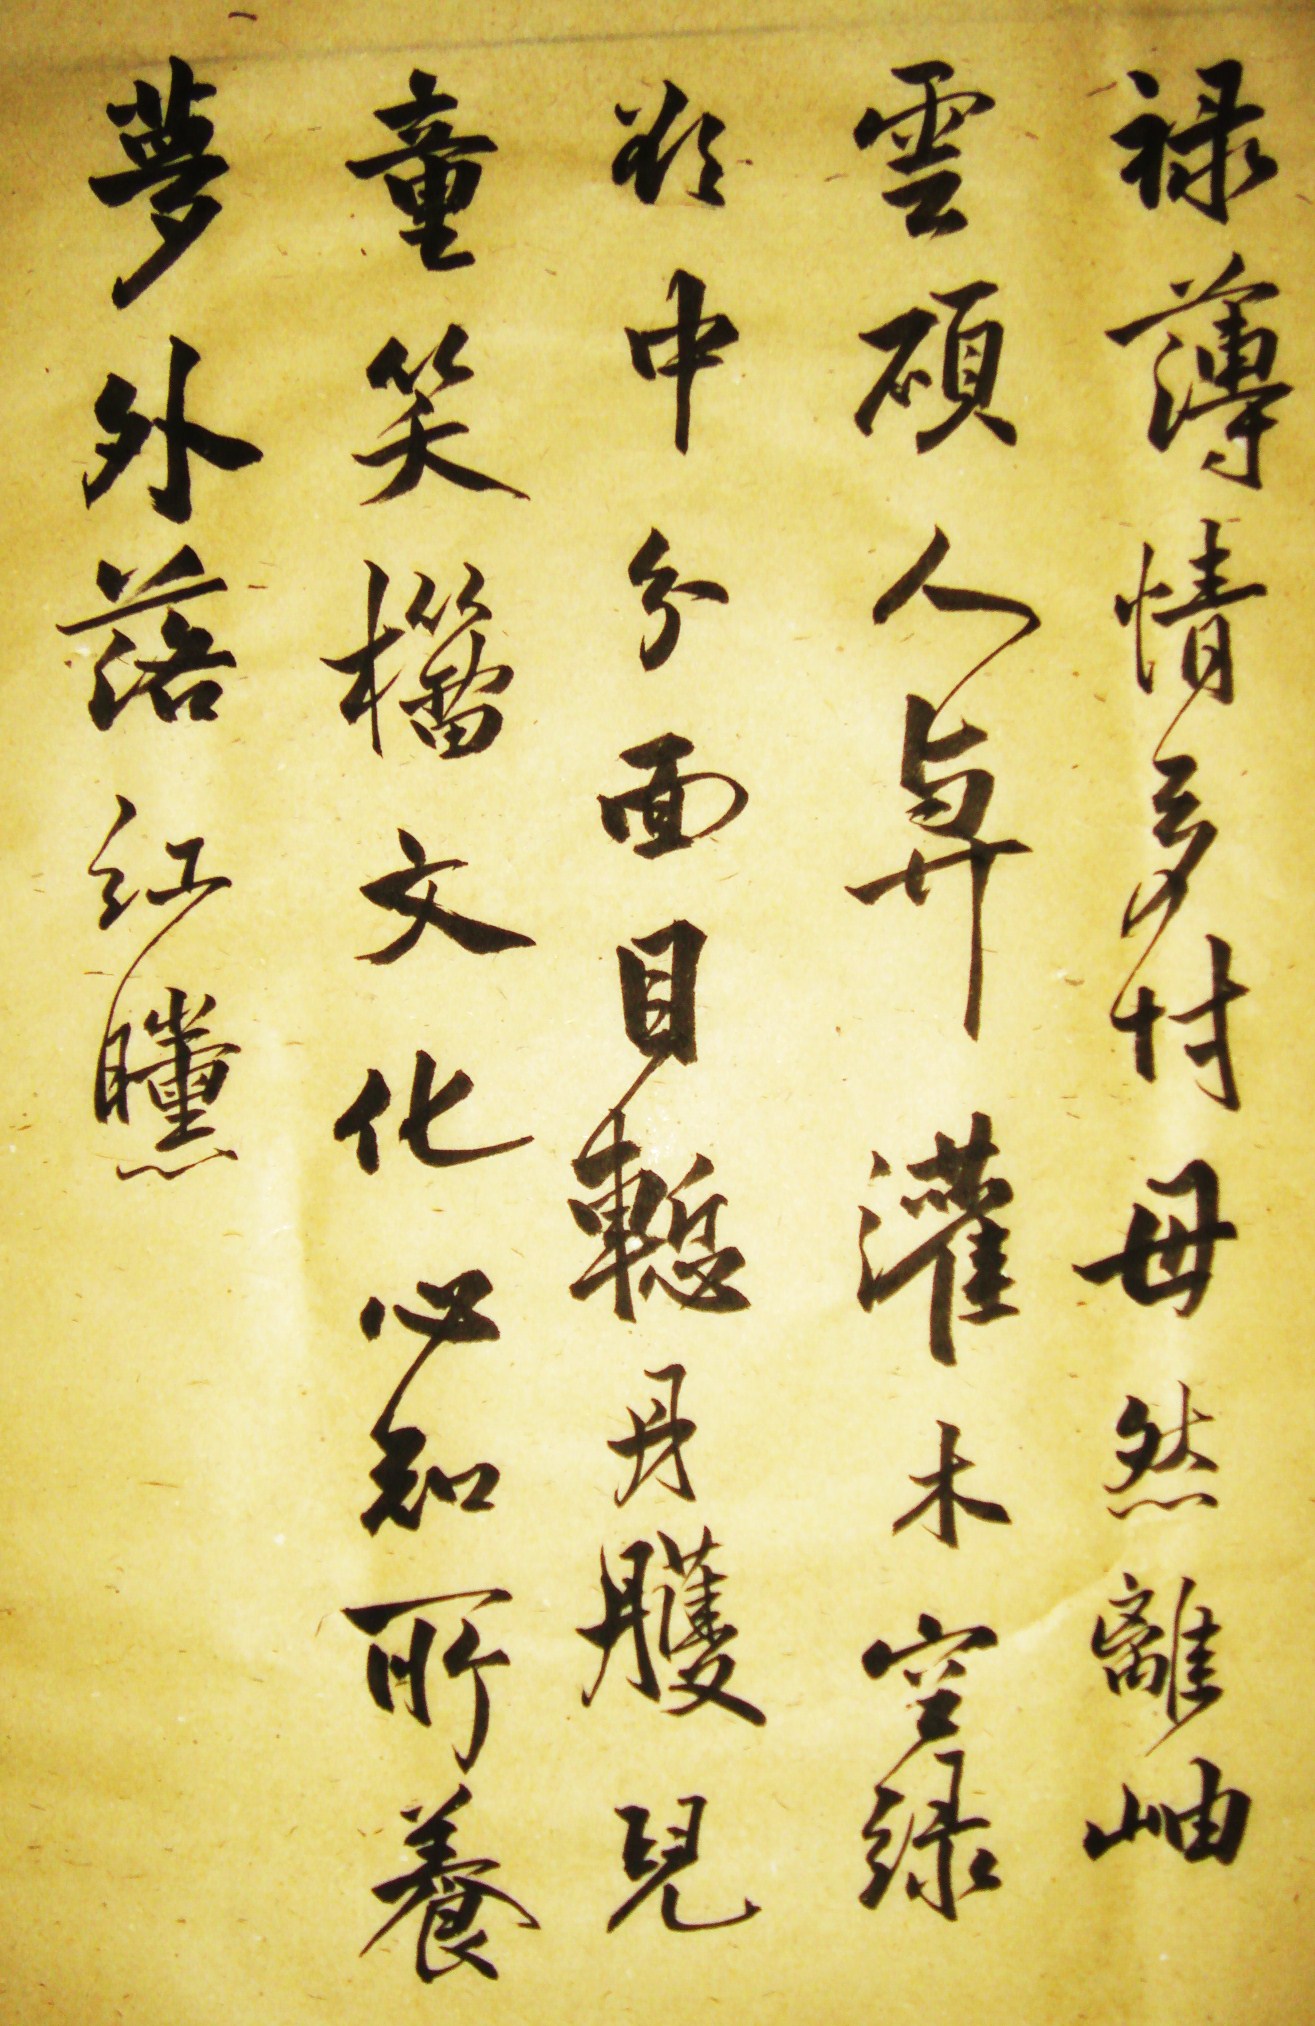 禄薄情多忖毋然離岫
雲碩人灌木空綠
於中分面目丹臒兒
童笑文化必知所養
夢外落紅曭